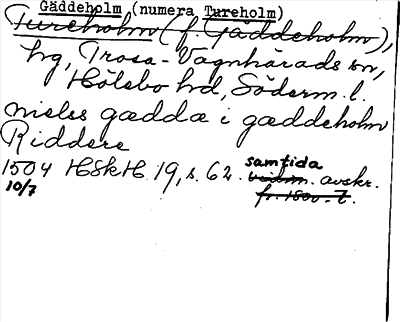 Gäddeholm (numera Tureholm)
Tureholm (f. Gäddeholm),
hg, Trosa-Vagnhärads sn,
Hölebo hd, Söderm. l.
nieles gædda i gæddeholm
Riddere
1504 HSkH 19, s. 62. samtida avskr.
10/7 fr. 1800-t.